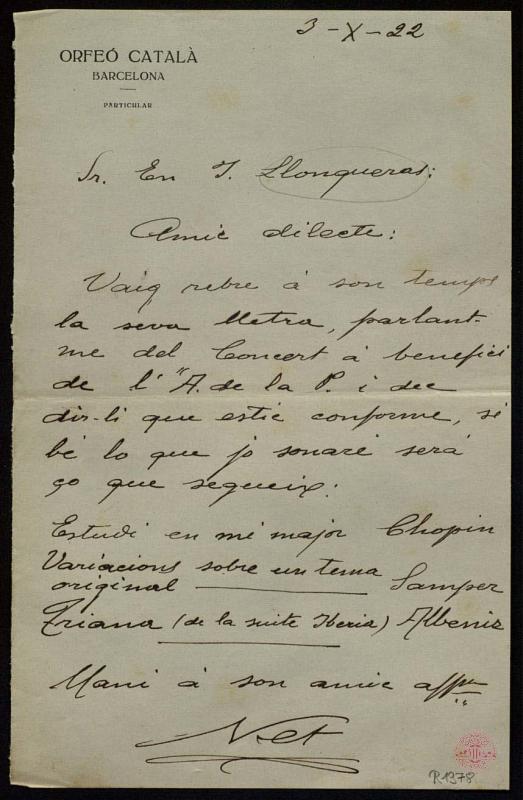 3-X-22
ORFEÓ CATALÀ
BARCELONA
PARTICULAR
Sr. En J. Llongueras:
Amic dilecte:
Vaig rebre á son temps
la seva lletra, parlant-
me del Concert á benefici
de l' "A. de la P. i dec
dir-li que estic conforme, si
bé lo que jo sonaré será
ço que segueix:
Estudi en mi major Chopin
Variacions sobre un tema
original — Samper
Triana (de la suite Iberia) Albeniz
Mani á son amic affm
R1378